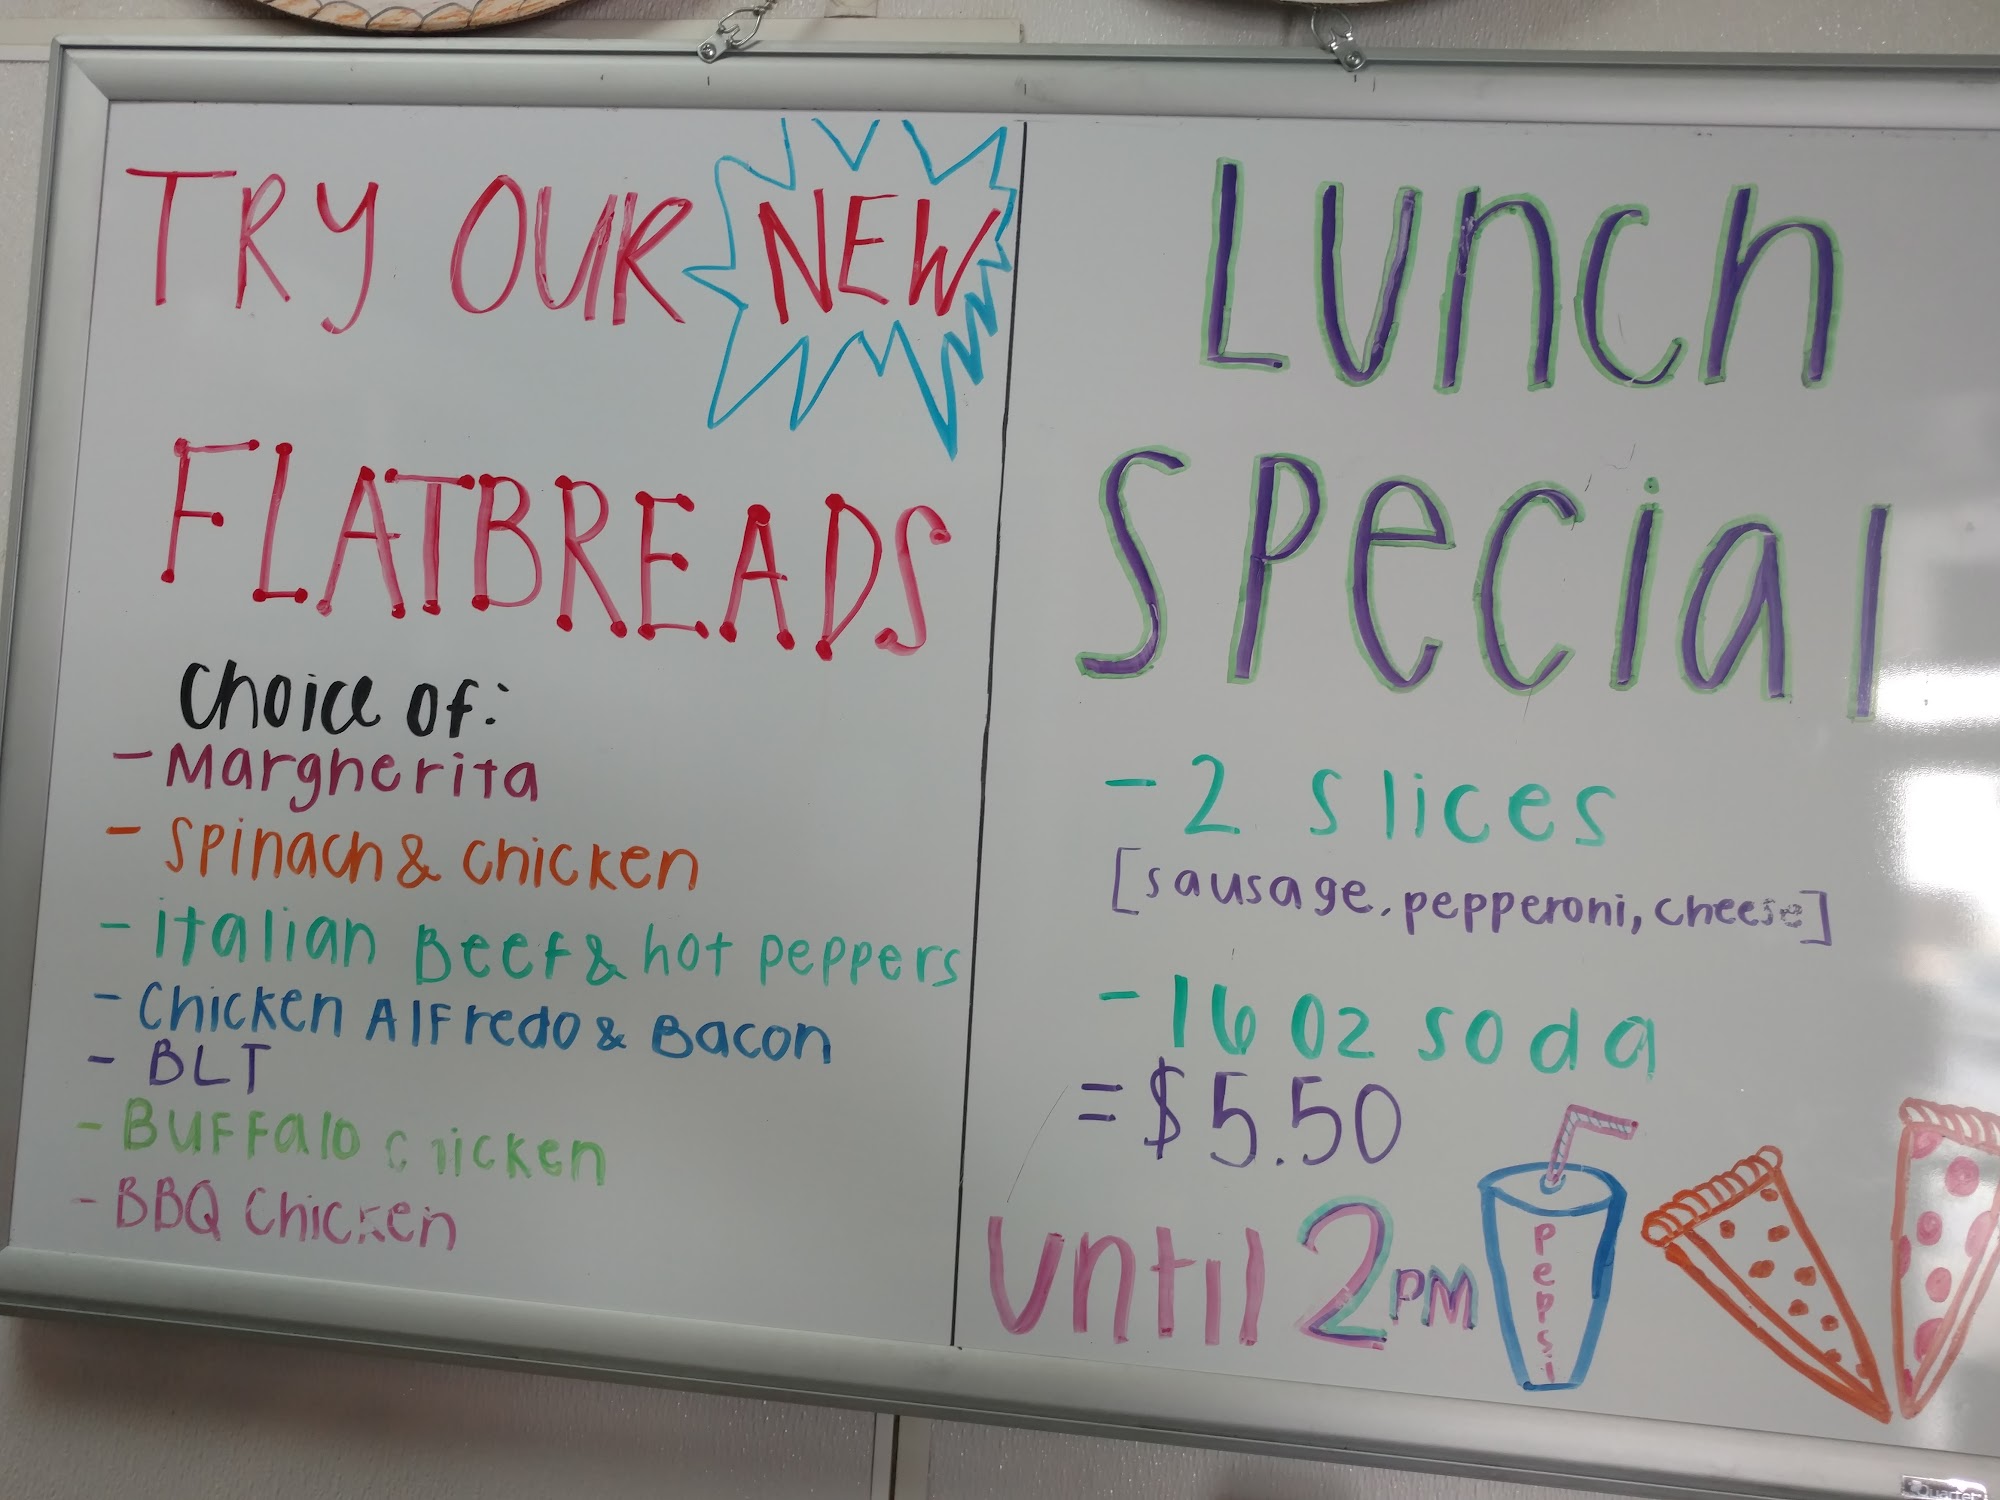 TRY OUR NEW
FLATBREADS
Choice of:
- Margherita
- Spinach & Chicken
- Italian Beef & hot peppers
- Chicken Alfredo & Bacon
- BLT
- Buffalo Chicken
- BBQ Chicken
Lunch
Special
- 2 slices
[sausage, pepperoni, cheese]
- 16 oz soda
= $5.50
until 2PM
Pepsi
Quartet